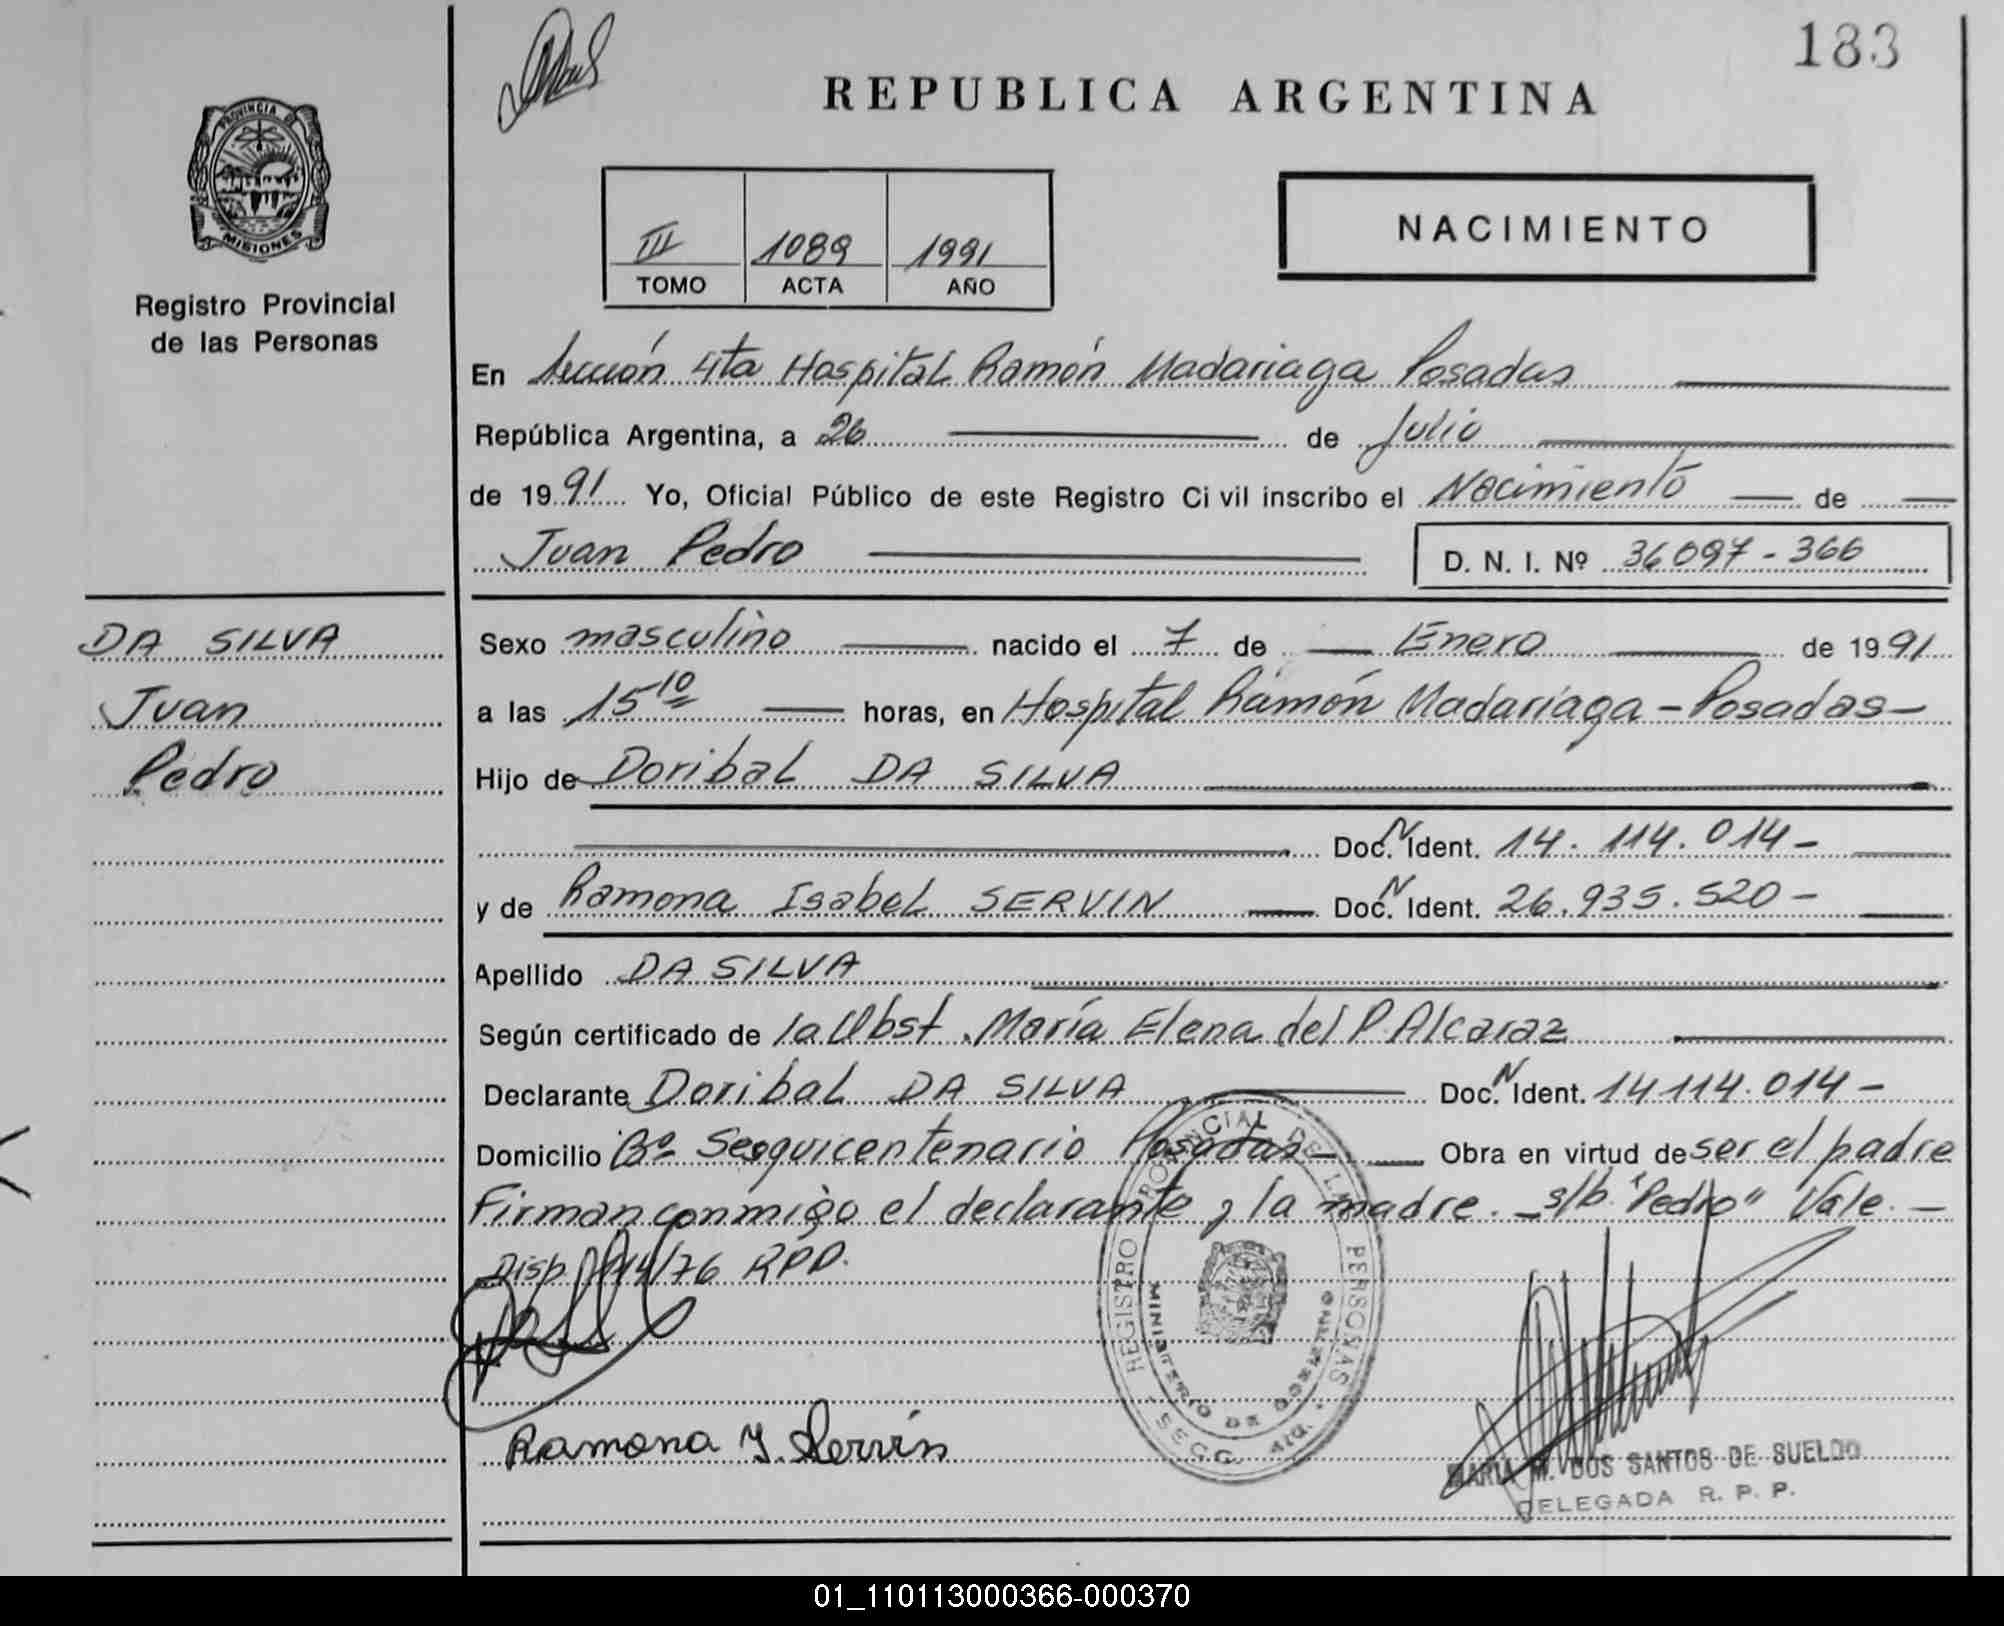 183
REPUBLICA ARGENTINA
PROVINCIA DE
MISIONES
Registro Provincial
de las Personas
III 1089 1991
TOMO ACTA AÑO
NACIMIENTO
En Sección 4ta Hospital Ramón Madariaga Posadas
República Argentina, a 26 de Julio
de 1991 Yo, Oficial Público de este Registro Civil inscribo el Nacimiento de
Juan Pedro D. N. I. Nº 36097-366
DA SILVA
Juan
Pedro
Sexo masculino nacido el 7 de Enero de 1991
a las 15 10 horas, en Hospital Ramón Madariaga - Posadas -
Hijo de Doribal DA SILVA
Doc. N Ident. 14.114.014-
y de Ramona Isabel SERVIN Doc. N Ident. 26.935.520-
Apellido DA SILVA
Según certificado de la Obst. María Elena del P. Alcaraz
Declarante Doribal DA SILVA Doc. N Ident. 14114.014-
Domicilio Bº Sesquicentenario Posadas- Obra en virtud de ser el padre
Firman conmigo el declarante y la madre. - s/b "Pedro" Vale. -
Disp. 14/76 RPP.
REGISTRO PROVINCIAL DE LAS PERSONAS
MINISTERIO DE GOBIERNO
Ramona Y. Servín
MARIA M. DOS SANTOS DE SUELDO
DELEGADA R. P. P.
01_110113000366-000370